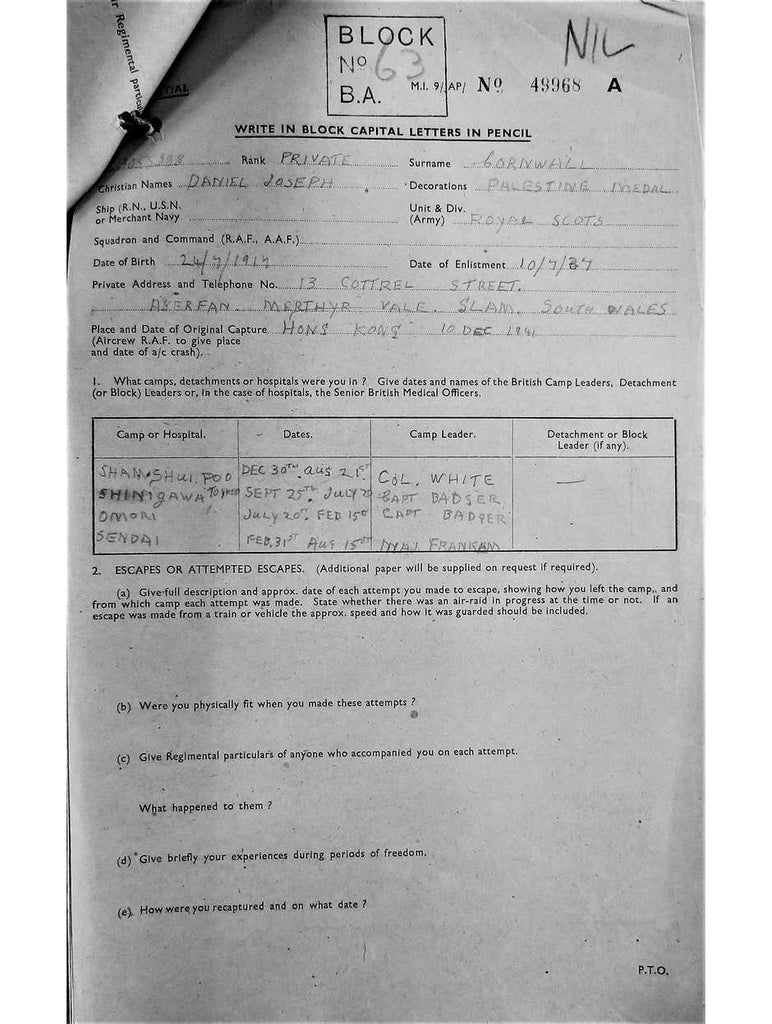 r Regimental particu
TIAL
BLOCK
No 63
B.A.
NIL
M.I. 9/ AP/ No 49968 A
WRITE IN BLOCK CAPITAL LETTERS IN PENCIL
Rank PRIVATE Surname CORNWALL
Christian Names DANIEL JOSEPH Decorations PALESTINE MEDAL
Ship (R.N., U.S.N. or Merchant Navy Unit & Div. (Army) ROYAL SCOTS
Squadron and Command (R.A.F., A.A.F.)
Date of Birth 24/7/1917 Date of Enlistment 10/7/37
Private Address and Telephone No. 13 COTTREL STREET.
ABERFAN. MERTHYR VALE. GLAM. SOUTH WALES
Place and Date of Original Capture HONG KONG 10 DEC 1941
(Aircrew R.A.F. to give place
and date of a/c crash).
1. What camps, detachments or hospitals were you in ? Give dates and names of the British Camp Leaders, Detachment
(or Block) Leaders or, in the case of hospitals, the Senior British Medical Officers.
Camp or Hospital. Dates. Camp Leader. Detachment or Block Leader (if any).
SHAMSHUI POO DEC 30TH AUG 21ST COL, WHITE —
SHINIGAWA TOKYO SEPT 25TH JULY 20 CAPT BADGER
OMORI JULY 20T. FEB 15TH CAPT BADGER
SENDAI FEB, 31ST AUG 15TH MAJ FRANKAM
2. ESCAPES OR ATTEMPTED ESCAPES. (Additional paper will be supplied on request if required).
(a) Give full description and approx. date of each attempt you made to escape, showing how you left the camp, and
from which camp each attempt was made. State whether there was an air-raid in progress at the time or not. If an
escape was made from a train or vehicle the approx. speed and how it was guarded should be included.
(b) Were you physically fit when you made these attempts ?
(c) Give Regimental particulars of anyone who accompanied you on each attempt.
What happened to them ?
(d) Give briefly your experiences during periods of freedom.
(e) How were you recaptured and on what date ?
P.T.O.